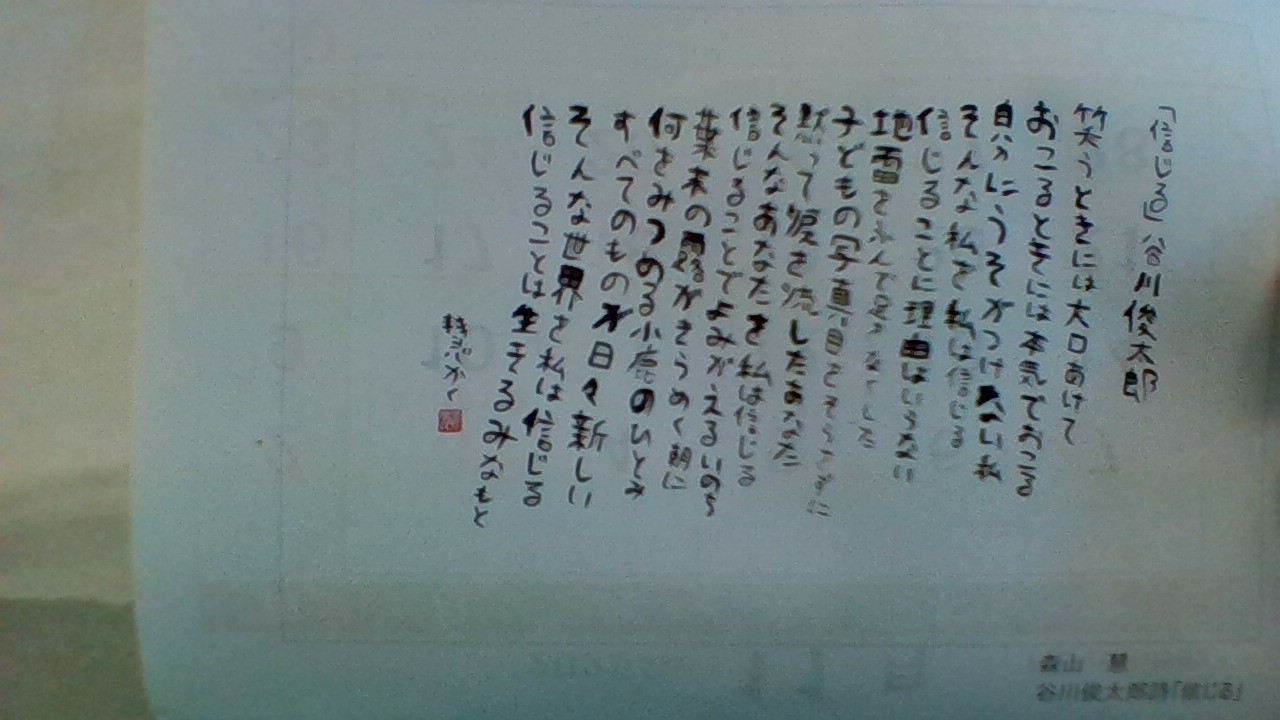 「信じる」 谷川俊太郎
笑うときには大口あけて
おこるときには本気でおこる
自分にうそがつけない私
そんな私を私は信じる
信じることに理由はいらない
地雷をふんで足をなくした
子どもの写真目をそらさずに
黙って涙を流したあなた
そんなあなたを私は信じる
信じることでよみがえるいのち
葉末の露がきらめく朝に
何をみつめる小鹿のひとみ
すべてのものが日々新しい
そんな世界を私は信じる
信じることは生きるみなもと
森山 慧
谷川俊太郎詩「信じる」